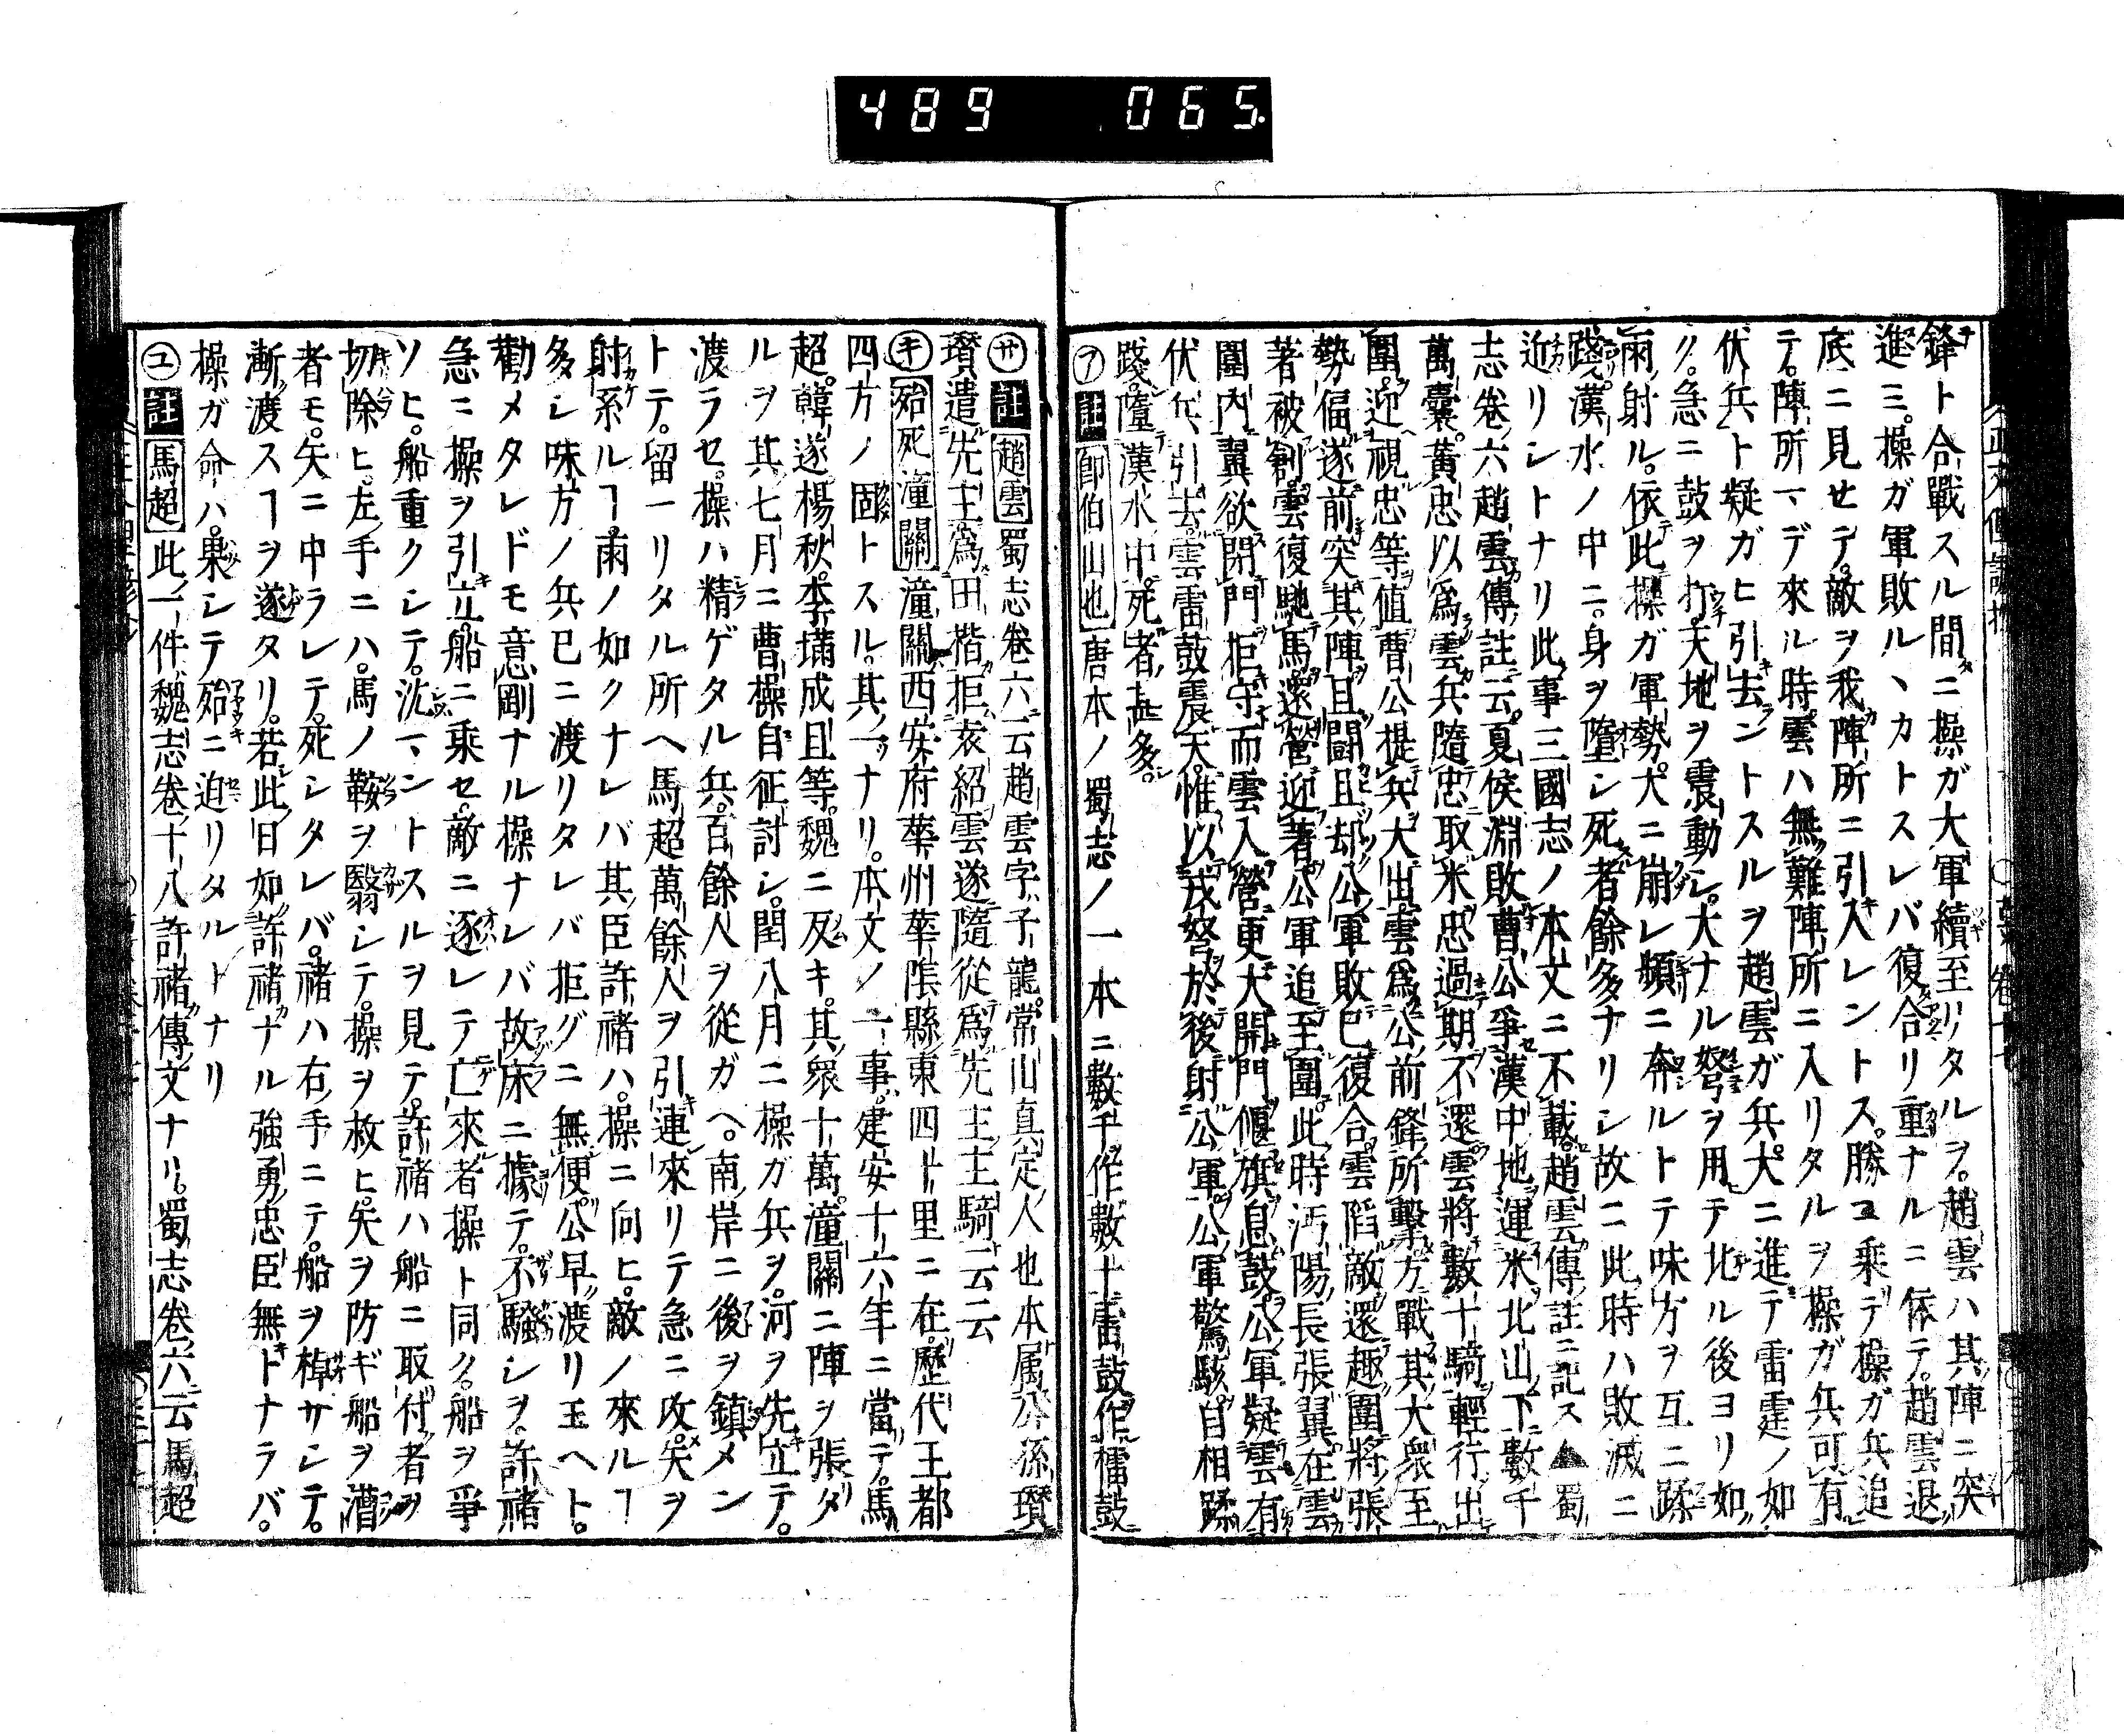 489 065
鋒ト合戰スル間ニ操ガ大軍續至リタルヲ。趙雲ハ其陣ニ突
進ミ。操ガ軍敗ルヽカトスレバ復合リ重ナルニ依テ。趙雲退
底ニ見セテ。敵ヲ我陣所ニ引入レントス。勝ニ乘テ操ガ兵追
テ。陣所マデ來ル時雲ハ無難陣所ニ入リタルヲ操ガ兵可有
伏兵ト疑ガヒ引去ントスルヲ趙雲ガ兵大ニ進デ雷霆ノ如
ク。急ニ鼓ヲ打。天地ヲ震動シ。大ナル弩ヲ用テ北ル後ヨリ如
雨射ル。依此操ガ軍勢大ニ崩レ頻ニ奔ルトテ味方ヲ互ニ蹂
踐漢水ノ中ニ。身ヲ墮シ死者餘多ナリシ故ニ此時ハ敗滅ニ
近リシトナリ此事三國志ノ本文ニ不載。趙雲傳註ニ記ス▲蜀
志卷六趙雲傳註云。夏侯淵敗曹公爭漢中地運米北山下數千
萬囊。黃忠以爲雲兵隨忠取米忠過期不還雲將數十騎輕行出
圍。迎視忠等値曹公提兵大出雲爲公前鋒所擊方戰其大衆至
勢偪遂前突其陣且鬪且却公軍敗已復合雲陷敵還趣圍將張
著被創雲復馳馬還營迎著公軍追至圍。此時沔陽長張翼在雲
圍內翼欲閉門拒守而雲入營更大開門偃旗息鼓公軍疑雲有
伏兵引去。雲雷鼓震天。惟以戎弩於後射公軍。公軍驚駭。自相蹂
踐。墮漢水中。死者甚多。
㋐註卽伯山也唐本ノ蜀志ノ一本ニ數千作數十雷鼓作櫑鼓
㋚註趙雲蜀志卷六云趙雲字子龍常山真定人也本属公孫瓚
瓚遣先主爲田楷拒袁紹雲遂隨從爲先主主騎云云
㋖殆死潼關潼關西安府華州華陰縣東四十里ニ在歷代王都
四方ノ固トスル。其一ナリ。本文ノ一事。建安十六年ニ當テ。馬
超。韓遂楊秋。李堪成且等。魏ニ反キ。其衆十萬。潼關ニ陣ヲ張タ
ルヲ其七月ニ曹操自征討シ。閏八月ニ操ガ兵ヲ。河ヲ先立テ。
渡ラセ。操ハ精ゲタル兵。百餘人ヲ從ガヘ。南岸ニ後ヲ鎮メン
トテ。留ーリタル所ヘ馬超萬餘人ヲ引連來リテ急ニ攻。矢ヲ
射系ルヿ。雨ノ如クナレバ其臣許褚ハ。操ニ向ヒ。敵ノ來ルヿ
多シ味方ノ兵巳ニ渡リタレバ拒グニ無便。公早渡リ玉ヘト。
勸メタレドモ意剛ナル操ナレバ故床ニ據テ。不騷シヲ。許褚
急ニ操ヲ引立。船ニ乘セ。敵ニ逐レテ亡來者操ト同ク。船ヲ爭
ソヒ。船重クシテ。沈マントスルヲ見テ。許褚ハ船ニ取付者ヲ
切除ヒ。左手ニハ。馬ノ鞍ヲ翳シテ。操ヲ救ヒ。矢ヲ防ギ船ヲ漕
者モ。矢ニ中ラレテ。死シタレバ。褚ハ右手ニテ。船ヲ棹サシテ。
漸渡スヿヲ遂タリ。若此日如許褚ナル強勇忠臣無ドナラバ。
操ガ命ハ。果シテ殆ニ迫リタルトナリ
㋴註馬超此一件魏志卷十八許褚傳文ナリ。蜀志卷六云馬超